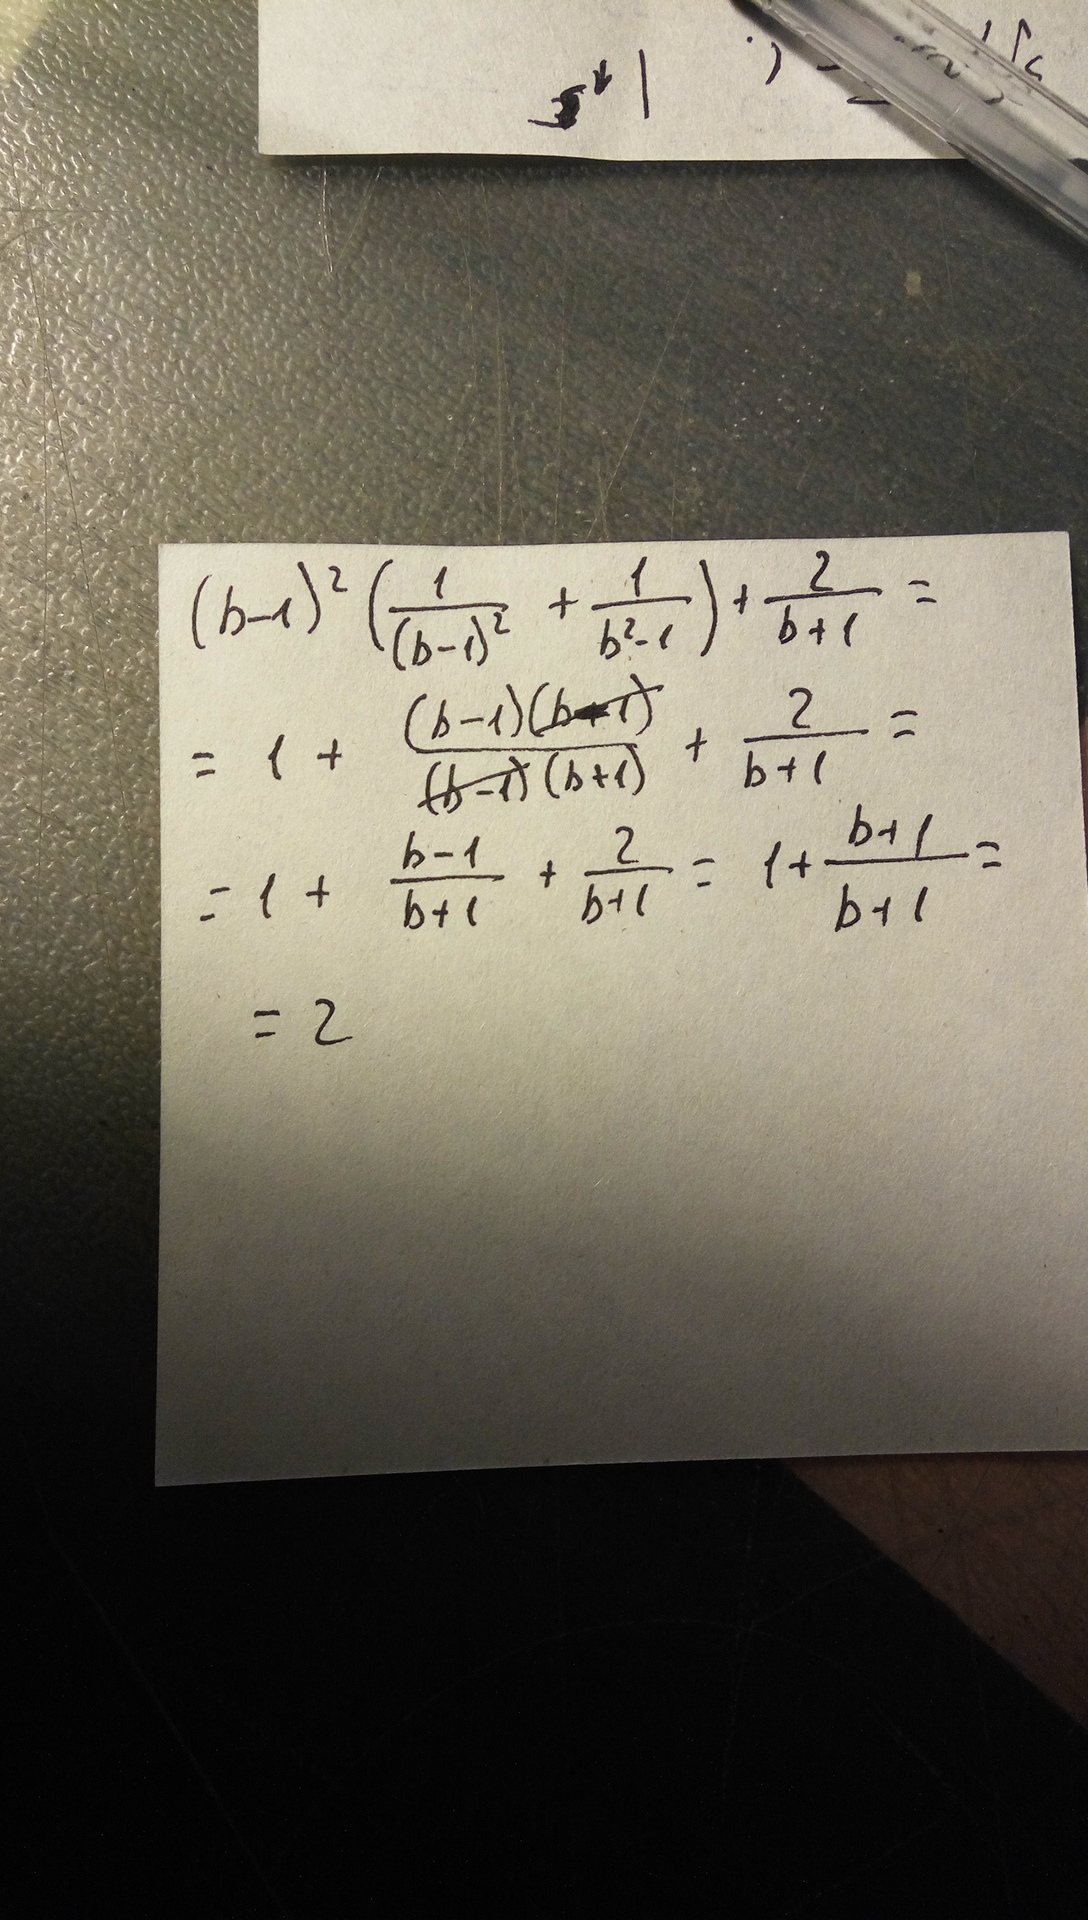 (b-1)² (1/(b-1)² + 1/(b²-1)) + 2/(b+1) =
= 1 + (b-1)(b-1)/(b-1)(b+1) + 2/(b+1) =
= 1 + (b-1)/(b+1) + 2/(b+1) = 1 + (b+1)/(b+1) =
= 2